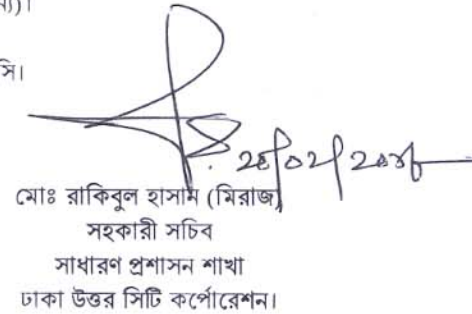 সি।
মোঃ রাকিবুল হাসান (মিরাজ)
সহকারী সচিব
সাধারণ প্রশাসন শাখা
ঢাকা উত্তর সিটি কর্পোরেশন।